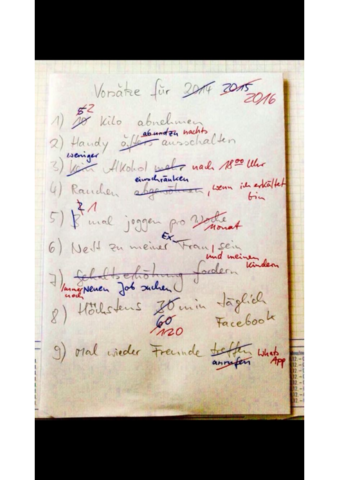 Vorsätze für 2014 2015
2016
5 2
1) 10 Kilo abnehmen
ab und zu nachts
2) Handy öfters ausschalten
weniger
3) Kein Alkohol mehr nach 18:00 Uhr
einschränken
4) Rauchen abgewöhnen, wenn ich erkältet
bin
2 1
5) mal joggen pro Woche
Monat
Ex-
6) Nett zu meiner Frau sein
und meinen
Kindern
7) Gehaltserhöhung fordern
immer Neuen Job suchen
noch
8) Höchstens min täglich
60 Facebook
120
9) Mal wieder Freunde treffen Whats
anrufen App